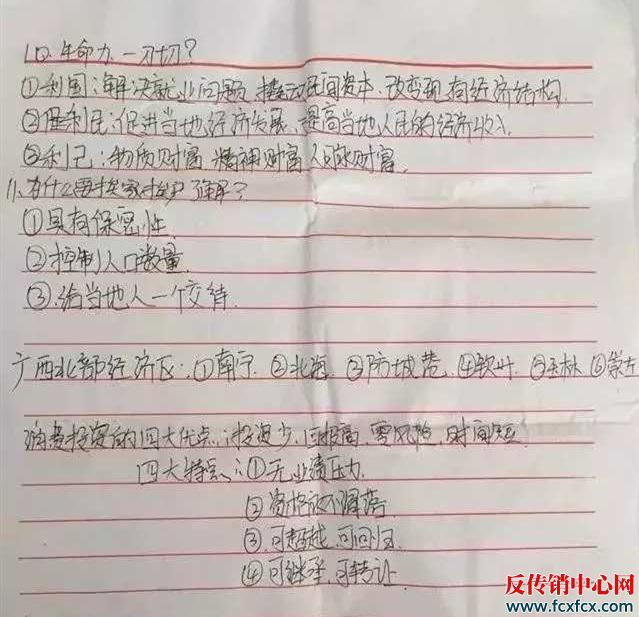 10. 生命力 一切?
①利国:解决就业问题、民间资本、改变现有经济结构.
②利民:促进当地经济发展、提高当地人民的经济收入
③利己:物质财富 精神财富 人际财富.
11、为什么要挨家挨户了解?
①具有保密性
②控制人口数量
③.给当地人一个交待.
广西北部经济区:①南宁 ②北海 ③防城港 ④钦州 ⑤玉林 ⑥崇左
消费投资的四大优点:投资少.回报高.零风险.时间短
四大特点:①无业绩压力
②资格
③.可超越.可回归.
④可继承.可转让
反传销中心网
www.fcxfcx.com